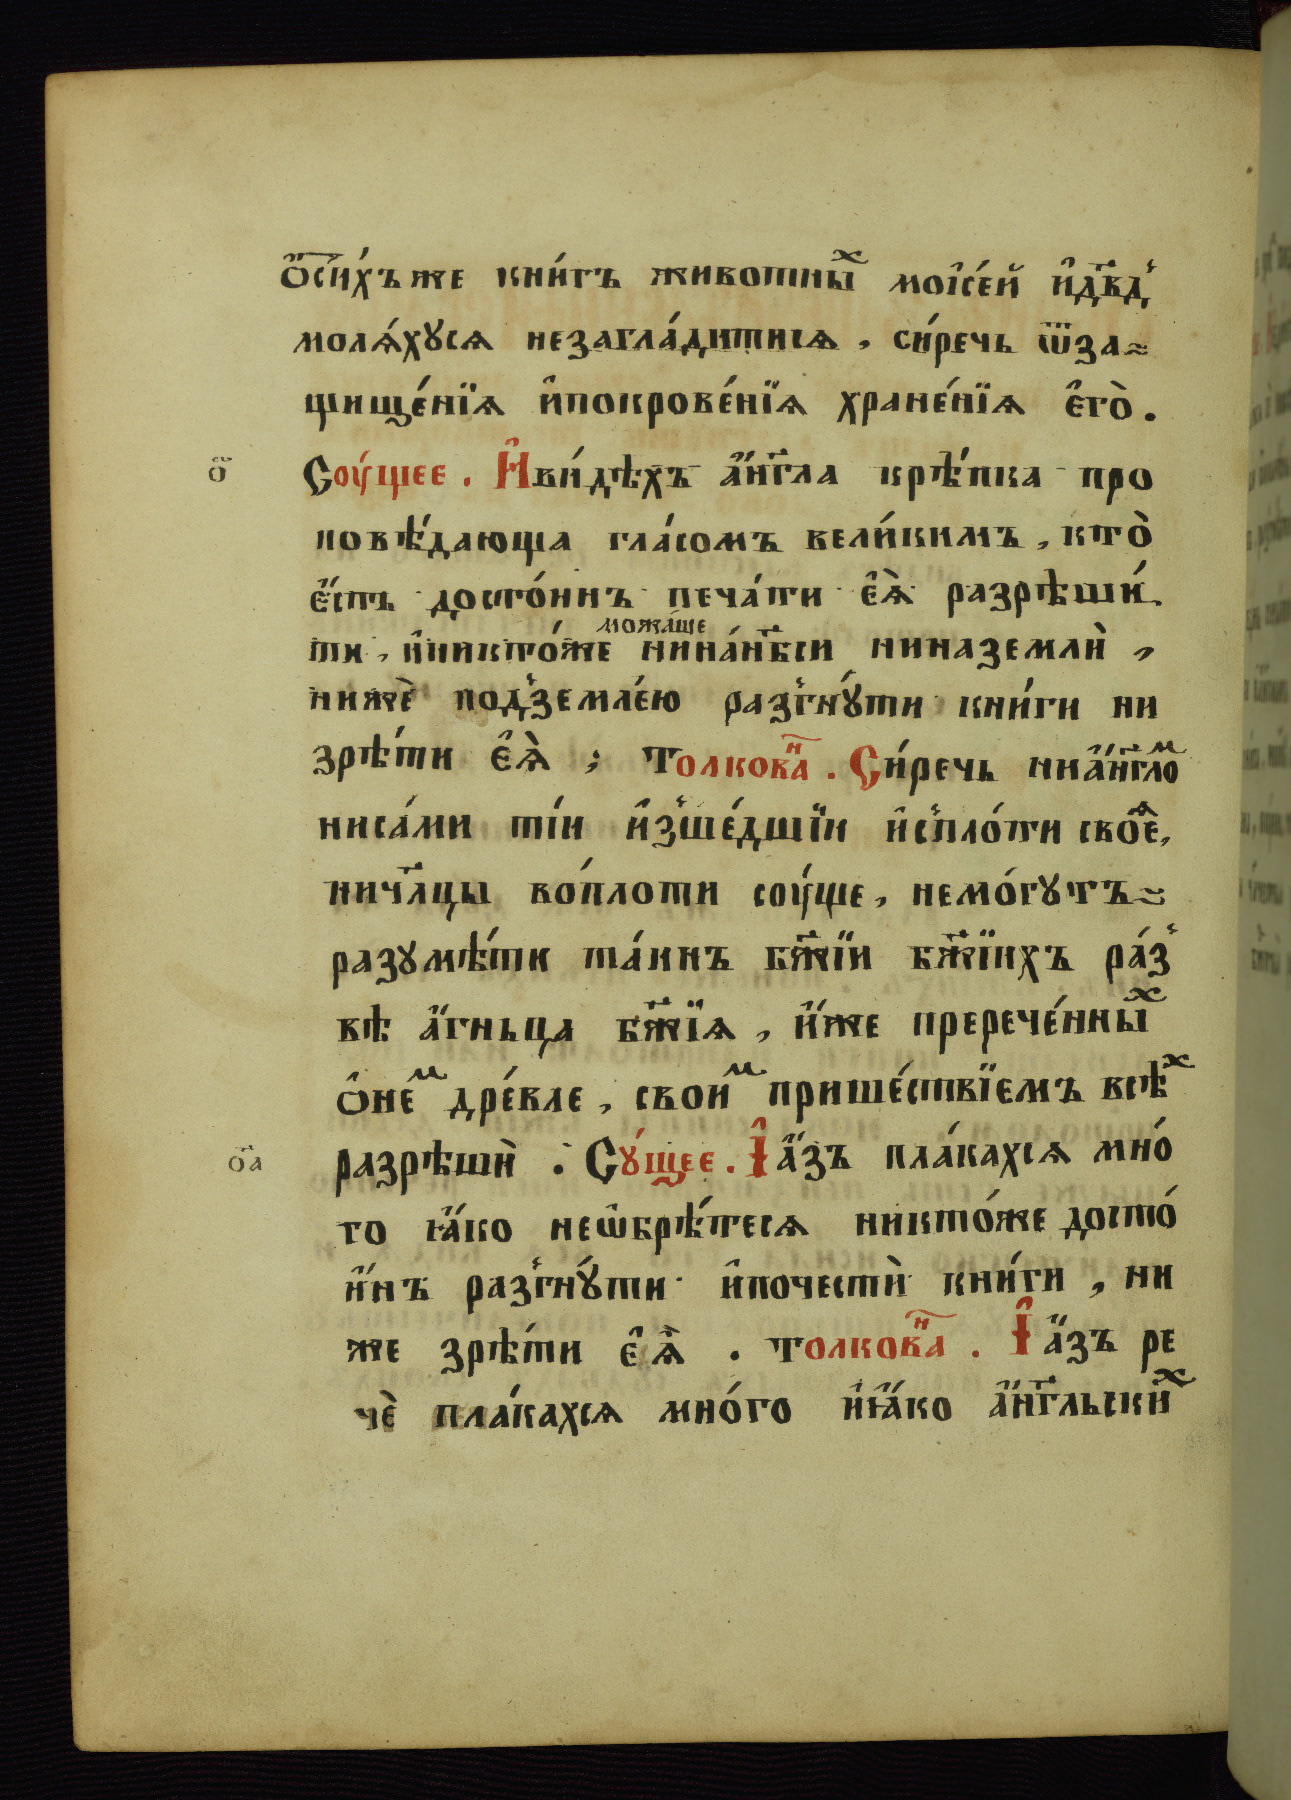 Ѻ҆си́хъ же кни́гъ животны́ⷯ мѡі҆се́й и҆дв҃дъ
молѧ́хꙋсѧ незагла́дитисѧ, си́речь ѿза-
щище́нїѧ и҆покрове́нїѧ хране́нїѧ є҆го̀.
о҃ Соу́щее. И҆ви́дѣхъ а҆́нг҃ла крѣ́пка про
повѣ́дающа гла́сомъ вели́кимъ, кто̀
є҆́сть досто́инъ печа́ти є҆ѧ̀ разрѣши́
можаше
ти, и҆никто́же нина́нб҃си ниназемлѝ,
нижѐ под̾земле́ю раз̾гнꙋ́ти кни́ги ни
зрѣ́ти є҆ѧ̀; Толковаⷩ҇. Си́речь ниа҆́нг҃лоⷨ
ниса́ми ті́и и҆з̾ше́дшїи и҆с̾пло́ти своеѧ,
ничл҃цы во́плоти соу́ще, немо́гꙋтъ
разꙋмѣ́ти та́инъ бж҃їи бж҃їихъ ра́з̾
вѣ а҆́гньца бж҃їѧ, и҆́же пререче́нныⷯ
ѻ҆неⷨ дре́вле, своиⷨ прише́ствїемъ всѣⷯ
оа҃ разрѣшѝ. Сꙋ́щее. І҆ а҆́зъ пла́кахсѧ мно́
го ꙗ҆́ко неѡ҆брѣ́тесѧ никто́же досто́
и҆нъ раз̾гнꙋ́ти и҆почестѝ кни́ги, ни
же зрѣ́ти є҆ѧ̀. Толковаⷩ҇. І҆ а҆́зъ ре
чѐ пла́кахсѧ мно́го и҆ꙗ҆́ко а҆́нг҃льскиⷯ